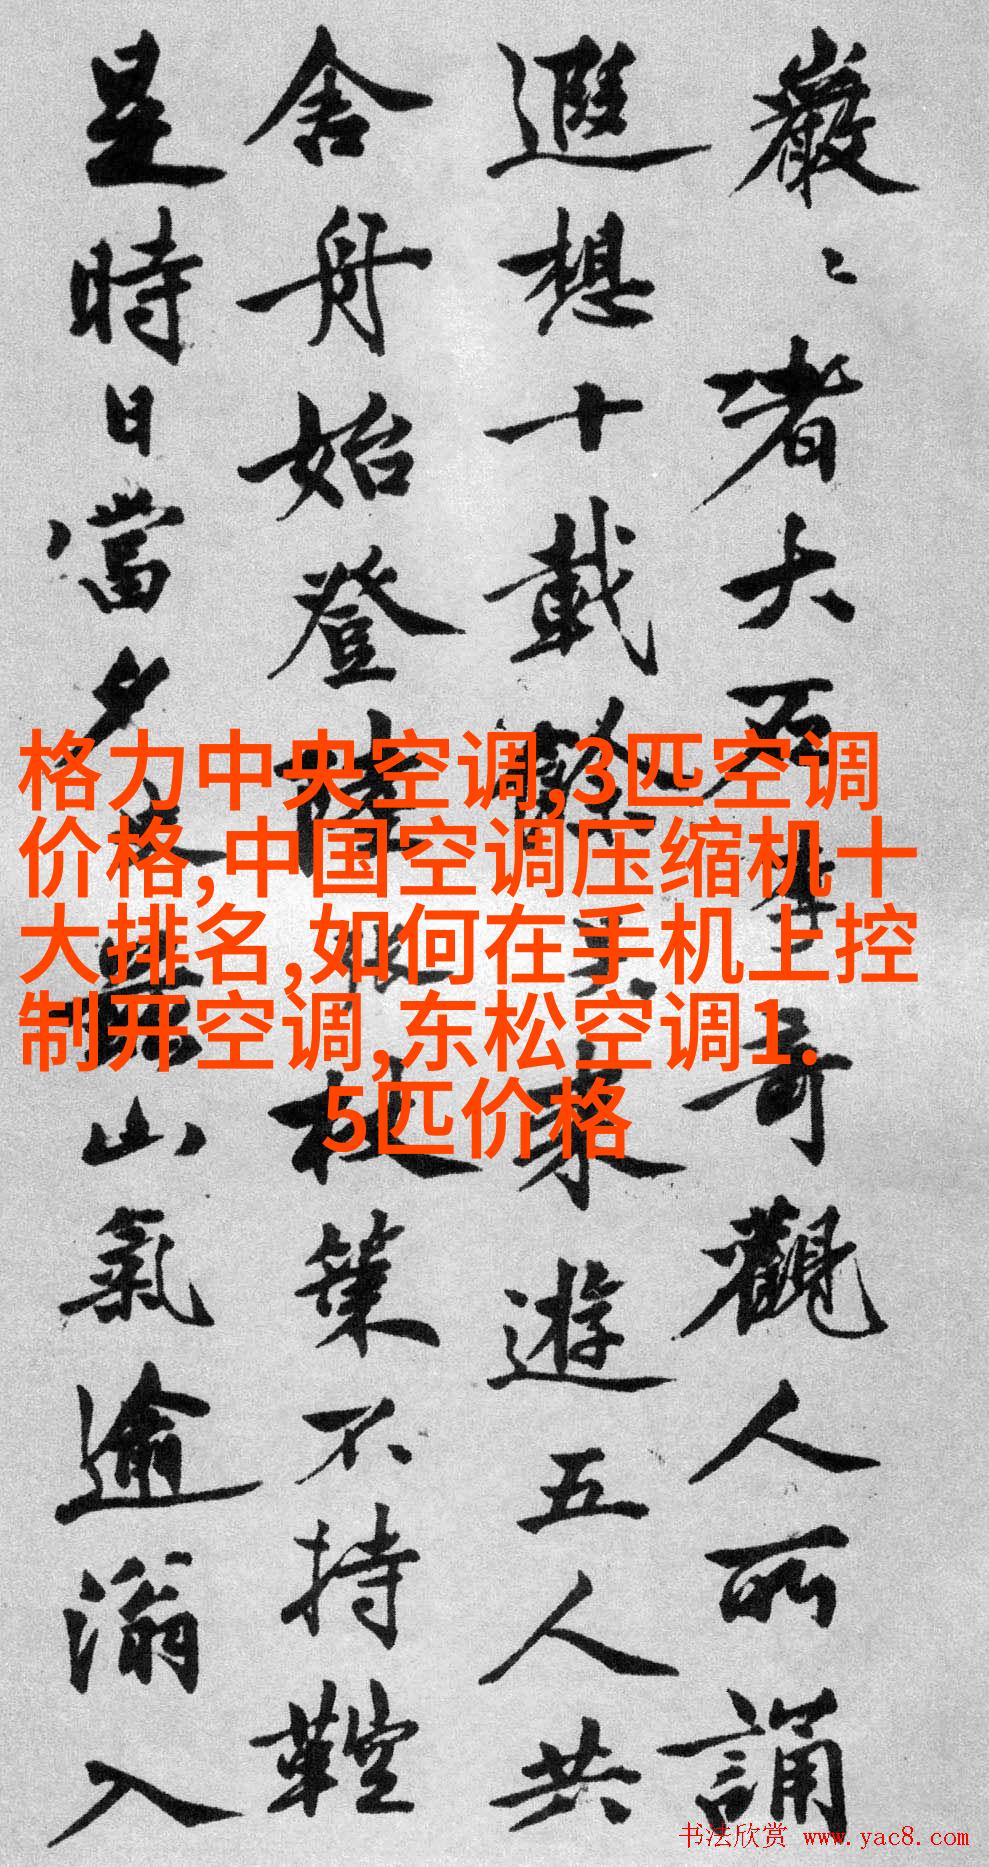 巖〻者大不琴奇觀人所誦
遐想十載餘其來遊五人共
舍舟始登陸似杖策不持鞚
是時日當夕山氣逾滃入
格力中央空调,3匹空调
价格,中国空调压缩机十
大排名,如何在手机上控
制开空调,东松空调1.
5匹价格
书法欣赏 www.yac8.com